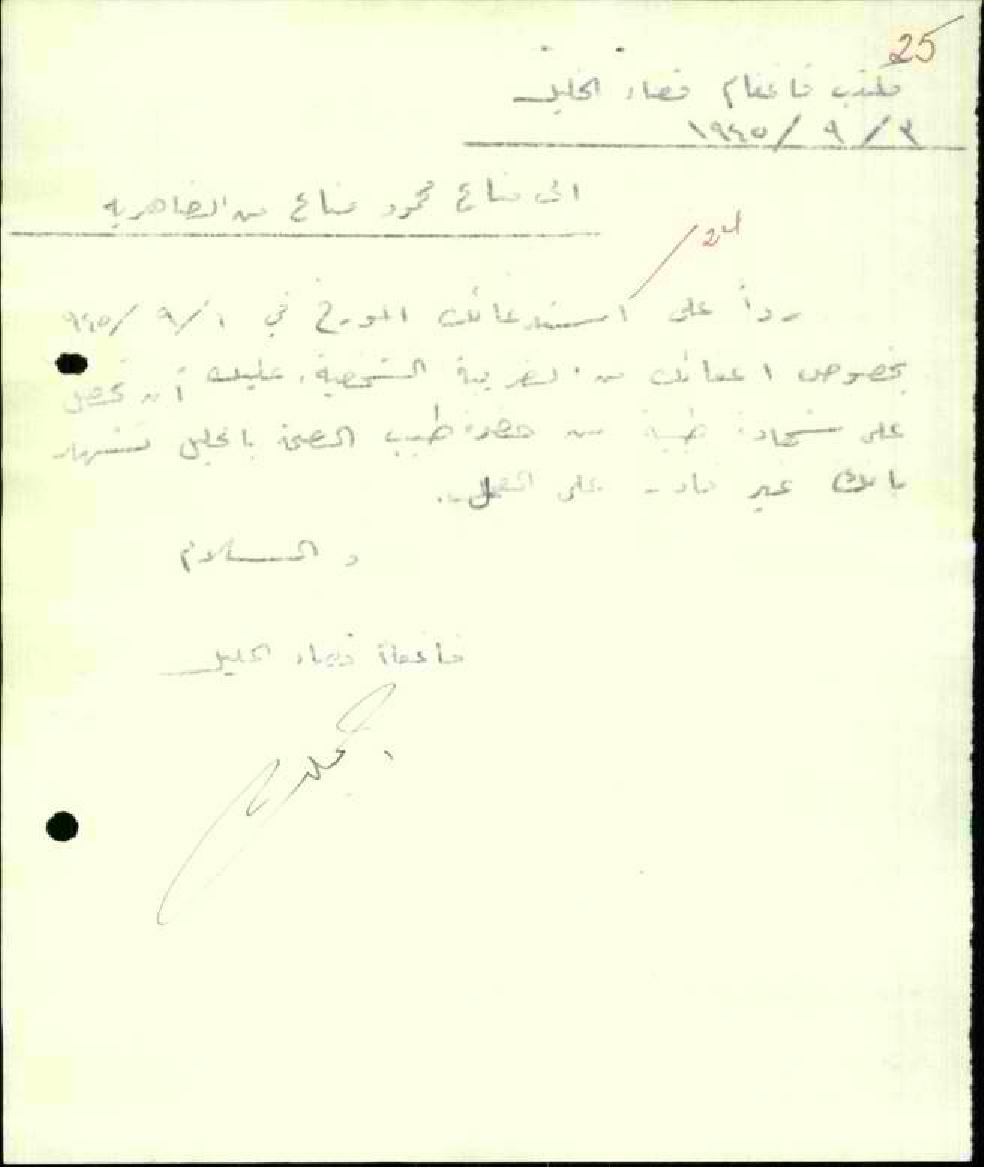 25
مكتب قائمقام قضاء الخليل
٣ / ٩ / ١٩٤٥
الى مناع محمود مناع من الظاهرية
24
رداً على استدعائك المورخ في ١ / ٩ / ٩٤٥
بخصوص اعفائك من الضريبة الشخصية، عليك أن تحصل
على شهادة طبية من حضرة طبيب الصحة بالخليل تشهد
بانك غير قادر على الشغل.
و السلام
قائمقام قضاء الخليل